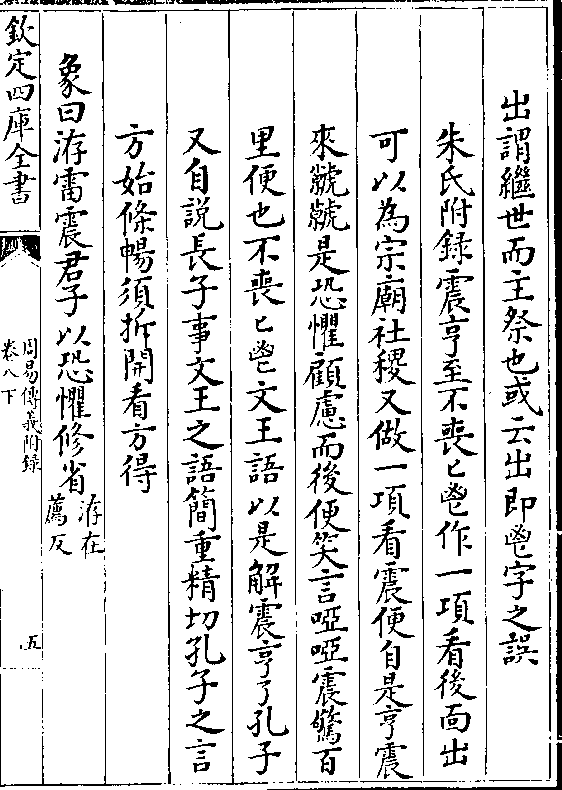 出謂繼世而主祭也或云出即鬯字之誤
朱氏附録震亨至不喪匕鬯作一項看後面出
可以為宗廟社稷又做一項看震便自是亨震
來虩虩是恐懼顧慮而後便笑言啞啞震驚百
里便也不喪匕鬯文王語以是解震亨了孔子
又自説長子事文王之語簡重精切孔子之言
方始條暢須拆開看方得
象曰洊雷震君子以恐懼修省洊在薦反
欽定四庫全書
周易傳義附録
卷八下
五